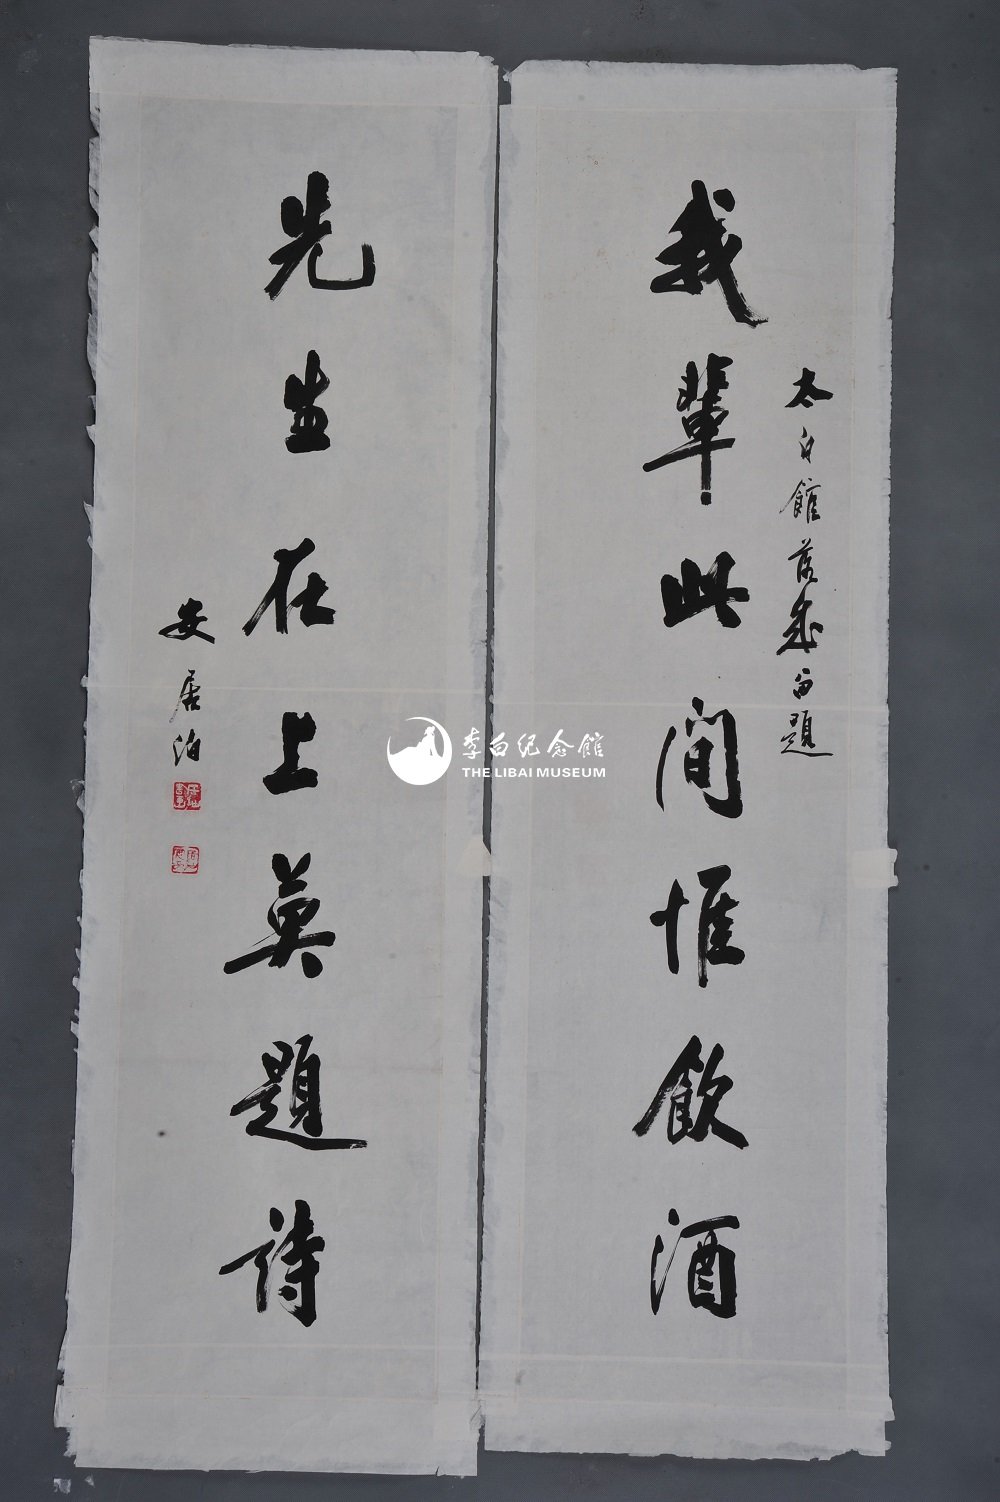 我輩此間惟飲酒
太白館落成留題
先生在上莫題詩
安居泊
李白纪念館
THE LIBAI MUSEUM